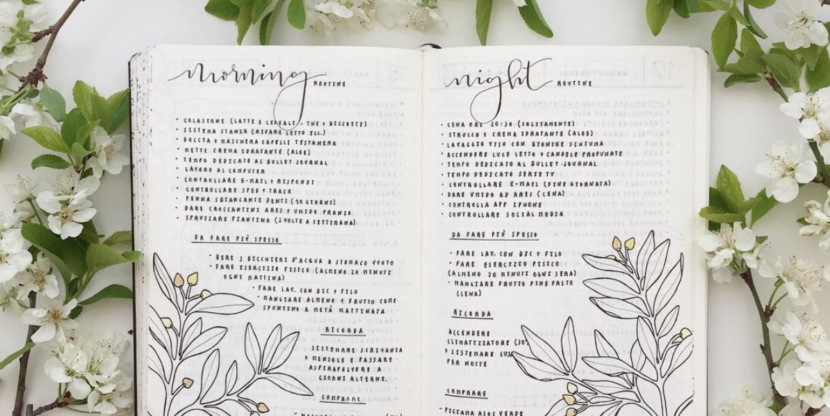 morning ROUTINE
• COLAZIONE (LATTE E CEREALI - THE + BISCOTTI)
• SISTEMA STANZA (RIFARE LETTO ECC.)
• DOCCIA + MASCHERA CAPELLI TESTANERA
• METTI CREMA IDRATANTE (ALOE)
• TEMPO DEDICATO AL BULLET JOURNAL
• LAVORO AL COMPUTER
• CONTROLLARE E-MAIL + RISPONDI
• CONTROLLARE SPED + TRACK
• PENNA SBIANCANTE DENTI (30 GIORNI)
• DARE CROCCANTINI ARES + UMIDO PRANZO
• SPRUZZARE PIANTINA (2 VOLTE A SETTIMANA)
DA FARE PIÙ SPESSO
• BERE 2 BICCHIERI D'ACQUA A STOMACO VUOTO
• FARE ESERCIZIO FISICO (ALMENO 20 MINUTI
OGNI MATTINA)
• FARE LAV. CON BIC + FILO
• MANGIARE ALMENO 1 FRUTTO COME
SPUNTINO A METÀ MATTINATA
RICORDA
SISTEMARE SCRIVANIA
+ MENSOLE E PASSARE
ASPIRAPOLVERE A
GIORNI ALTERNI.
COMPRARE
night ROUTINE
• CENA ORE 20:30 (SOLITAMENTE)
• STRUCCO + CREMA IDRATANTE (ALOE)
• LAVAGGIO VISO CON
• ACCENDERE LUCE LETTO + CANDELE PROFUMATE
• TEMPO DEDICATO AL BULLET JOURNAL
• TEMPO DEDICATO SERIE TV
• CONTROLLARE E-MAIL (FINE GIORNATA)
• DARE UMIDO AD ARES (CENA)
• CONTROLLA APP IPHONE
• CONTROLLARE SOCIAL MEDIA
DA FARE PIÙ SPESSO
• FARE LAV. CON BIC + FILO
• FARE ESERCIZIO FISICO
(ALMENO 20 MINUTI OGNI SERA)
• MANGIARE FRUTTO FINE PASTO
(CENA)
RICORDA
ACCENDERE
CLIMATIZZATORE
+ SISTEMARE
PER NOTTE
COMPRARE